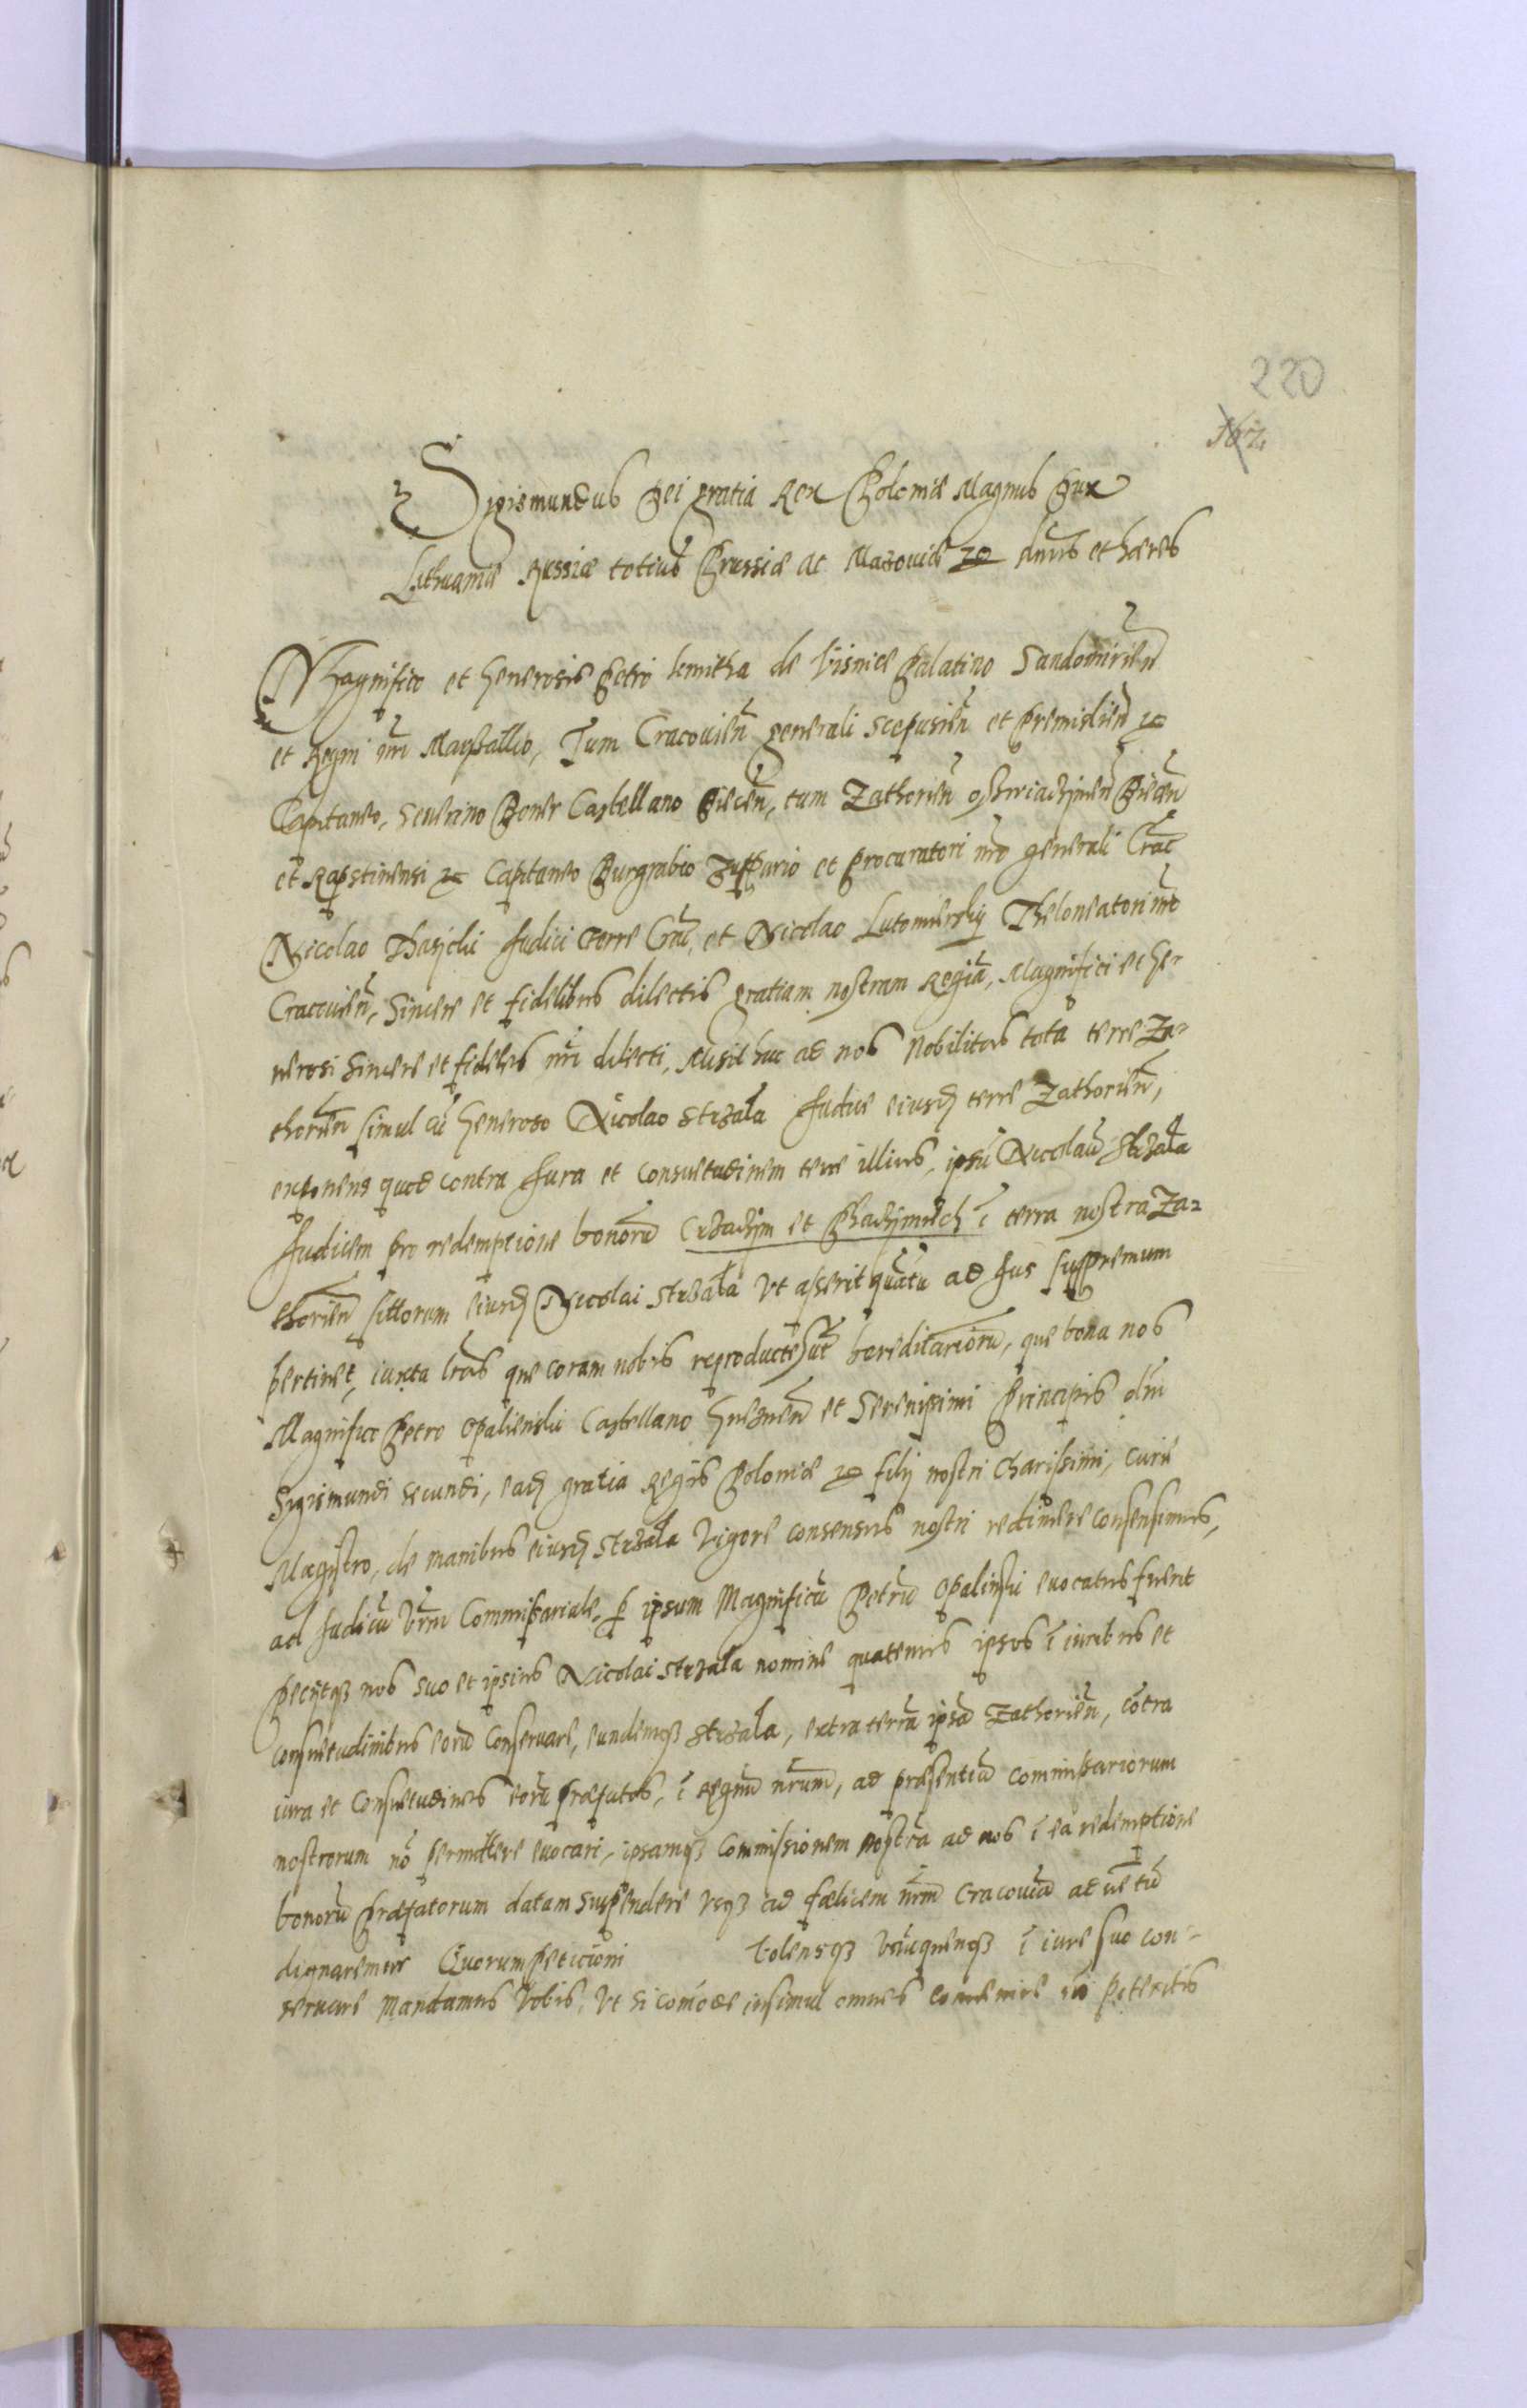 220
162
Sigismundus Dei gratia Rex Poloniæ Magnus Dux
Lithuaniæ Russiæ totius Prussiæ ac Mazouiæ zc dnus et hæres
Magnifico et Generosis Petro kmitha de Visnicæ Palatino Sandomirien̄
et Regni nr̄i Marsallco, Tum Cracouien̄ generali scepusien̄ et premislien̄ zc
Capitaneo, Seuerino Boner Castellano Biecen̄, tum Zathorien̄ oswiaczimen̄ Biecen̄
et Rapstinensi zc Capitaneo Burgrabio Zuppario et procuratori nr̄o generali Crac̄
Nicolao Thasiczki Judici Terre Crac̄, et Nicolao Lutomierskij Theloneatori nr̄o
Cracouien̄, Sincere et fidelibus dilectis gratiam nostram Regiā, Magnifici et Ge-
nerosi Sincere et fideles nr̄i dilecti, Misit huc ad nos Nobilitas tota terre Za-
thorien̄ simul cū Generoso Nicolao Strzala Judice eiusd terre Zathorien̄,
exponens quod contra Jura et consuetudinem terre illius, ipsū Nicolaū Strzala
Judicem pro redemptione bonorū Crzaczim et Phaczimiech ī terra nostra Za-
thorien̄ sittorum eiusd Nicolai Strzala vt asserit quātū ad Jus supremum
pertinet, iuxta lr̄as que coram nobis reproducte sūt hereditariorū, que bona nos
Magnifico Petro Opalienski Castellano Gneznen̄ et Serenissimi Principis dn̄i
Sigismundi secundi, ead gratia Regis Poloniæ zc filij nostri charissimi, Curie
Magistro, de manibus eiusd Strzala Vigore consensus nostri redimere consensimus,
ad Judiciū vr̄m Commissariale, p ipsum Magnificū Petrū Opalinski euocatus fuerit
Peciitq3 nos suo et ipsius Nicolai Strzala nomine quatenus ipsos ī iuribus et
consuetudinibus eorū conseruare, eundemq3 Strzala, extra terrā ipsā Zathorien̄, cōtra
iura et Consuetudines eorū præfatas, ī Regnū nr̄um, ad præsentiā commissariorum
nostrorum nō permittere euocari, ipsamq3 Commissionem nostrā ad nos ī ea redemptione
bonorū præfatorum datam suspendere vsq3 ad fælicem nr̄m Cracouiā aduētū
dignaremur Quorum peticioni Volensq3 vtrūquenq3 ī iure suo con-
seruare Mandamus Vobis, Vt si comōde insimul omnes conuenire nō poteritis